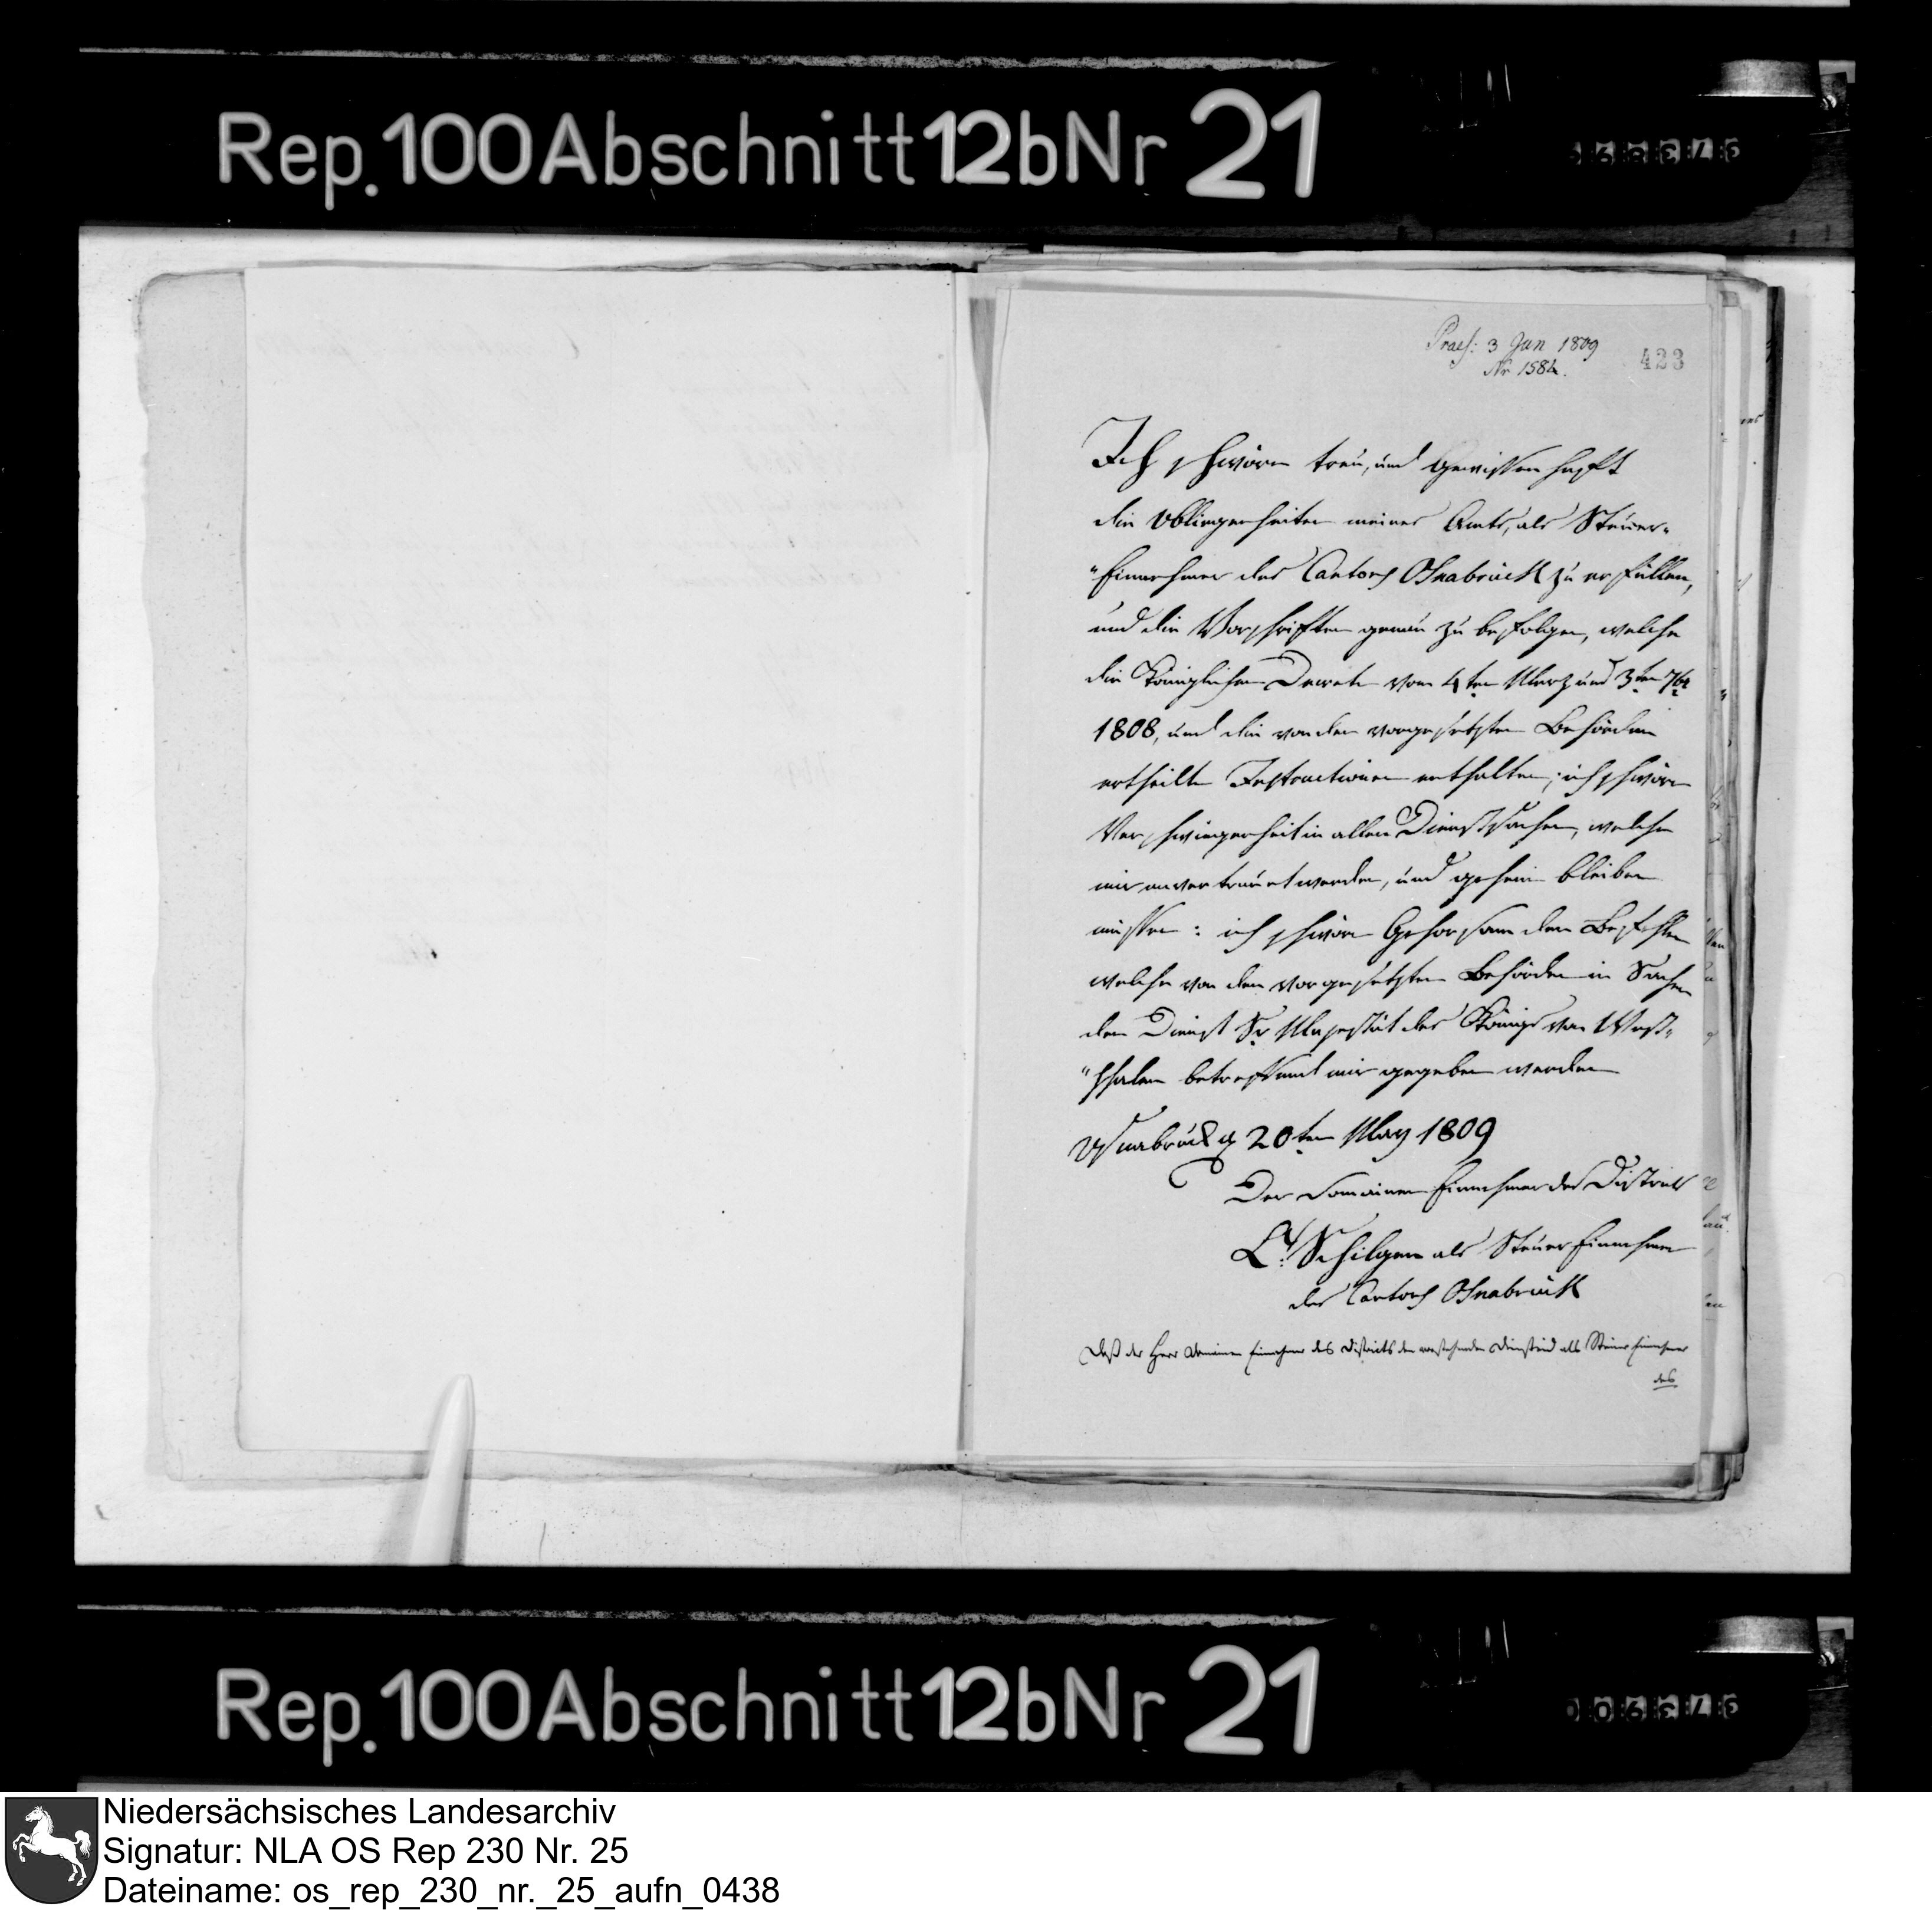 Rep. 100 Abschnitt 12b Nr 21
Praes: 3 Jun 1809
Nr 1584.
423
Ich schwöre treu, und Gewissenhaft
die Obliegenheiten meines Amts, als Steuer-
"Einnehmer des Cantons Osnabrück zu erfüllen,
und die Vorschriften genau zu befolgen, welche
die Königlichen Decrete vom 4ten Merz und 3ten 7br
1808, und die von den vorgesetzten Behörden
ertheilte Instructionen enthalten; ich schwöre
Verschwiegenheit in allen Dienstsachen, welche
mir anvertrauet werden, und geheim bleiben
müssen: ich schwöre Gehorsam den Befehlen
welche von den vorgesetzten Behörden in Sachen
den Dienst Sr Majestät des Königs von West-
"phalen betreffend mir gegeben werden
Osnabrück 20ten May 1809
Der Domainen Einnehmer des Districts
Schilgen als Steuer Einnehmer
des Cantons Osnabrück
Daß der Herr Domainen Einnehmer des Districts den vorstehenden Diensteid als Steuer Einnehmer
des
Rep. 100 Abschnitt 12b Nr 21
Niedersächsisches Landesarchiv
Signatur: NLA OS Rep 230 Nr. 25
Dateiname: os_rep_230_nr._25_aufn_0438